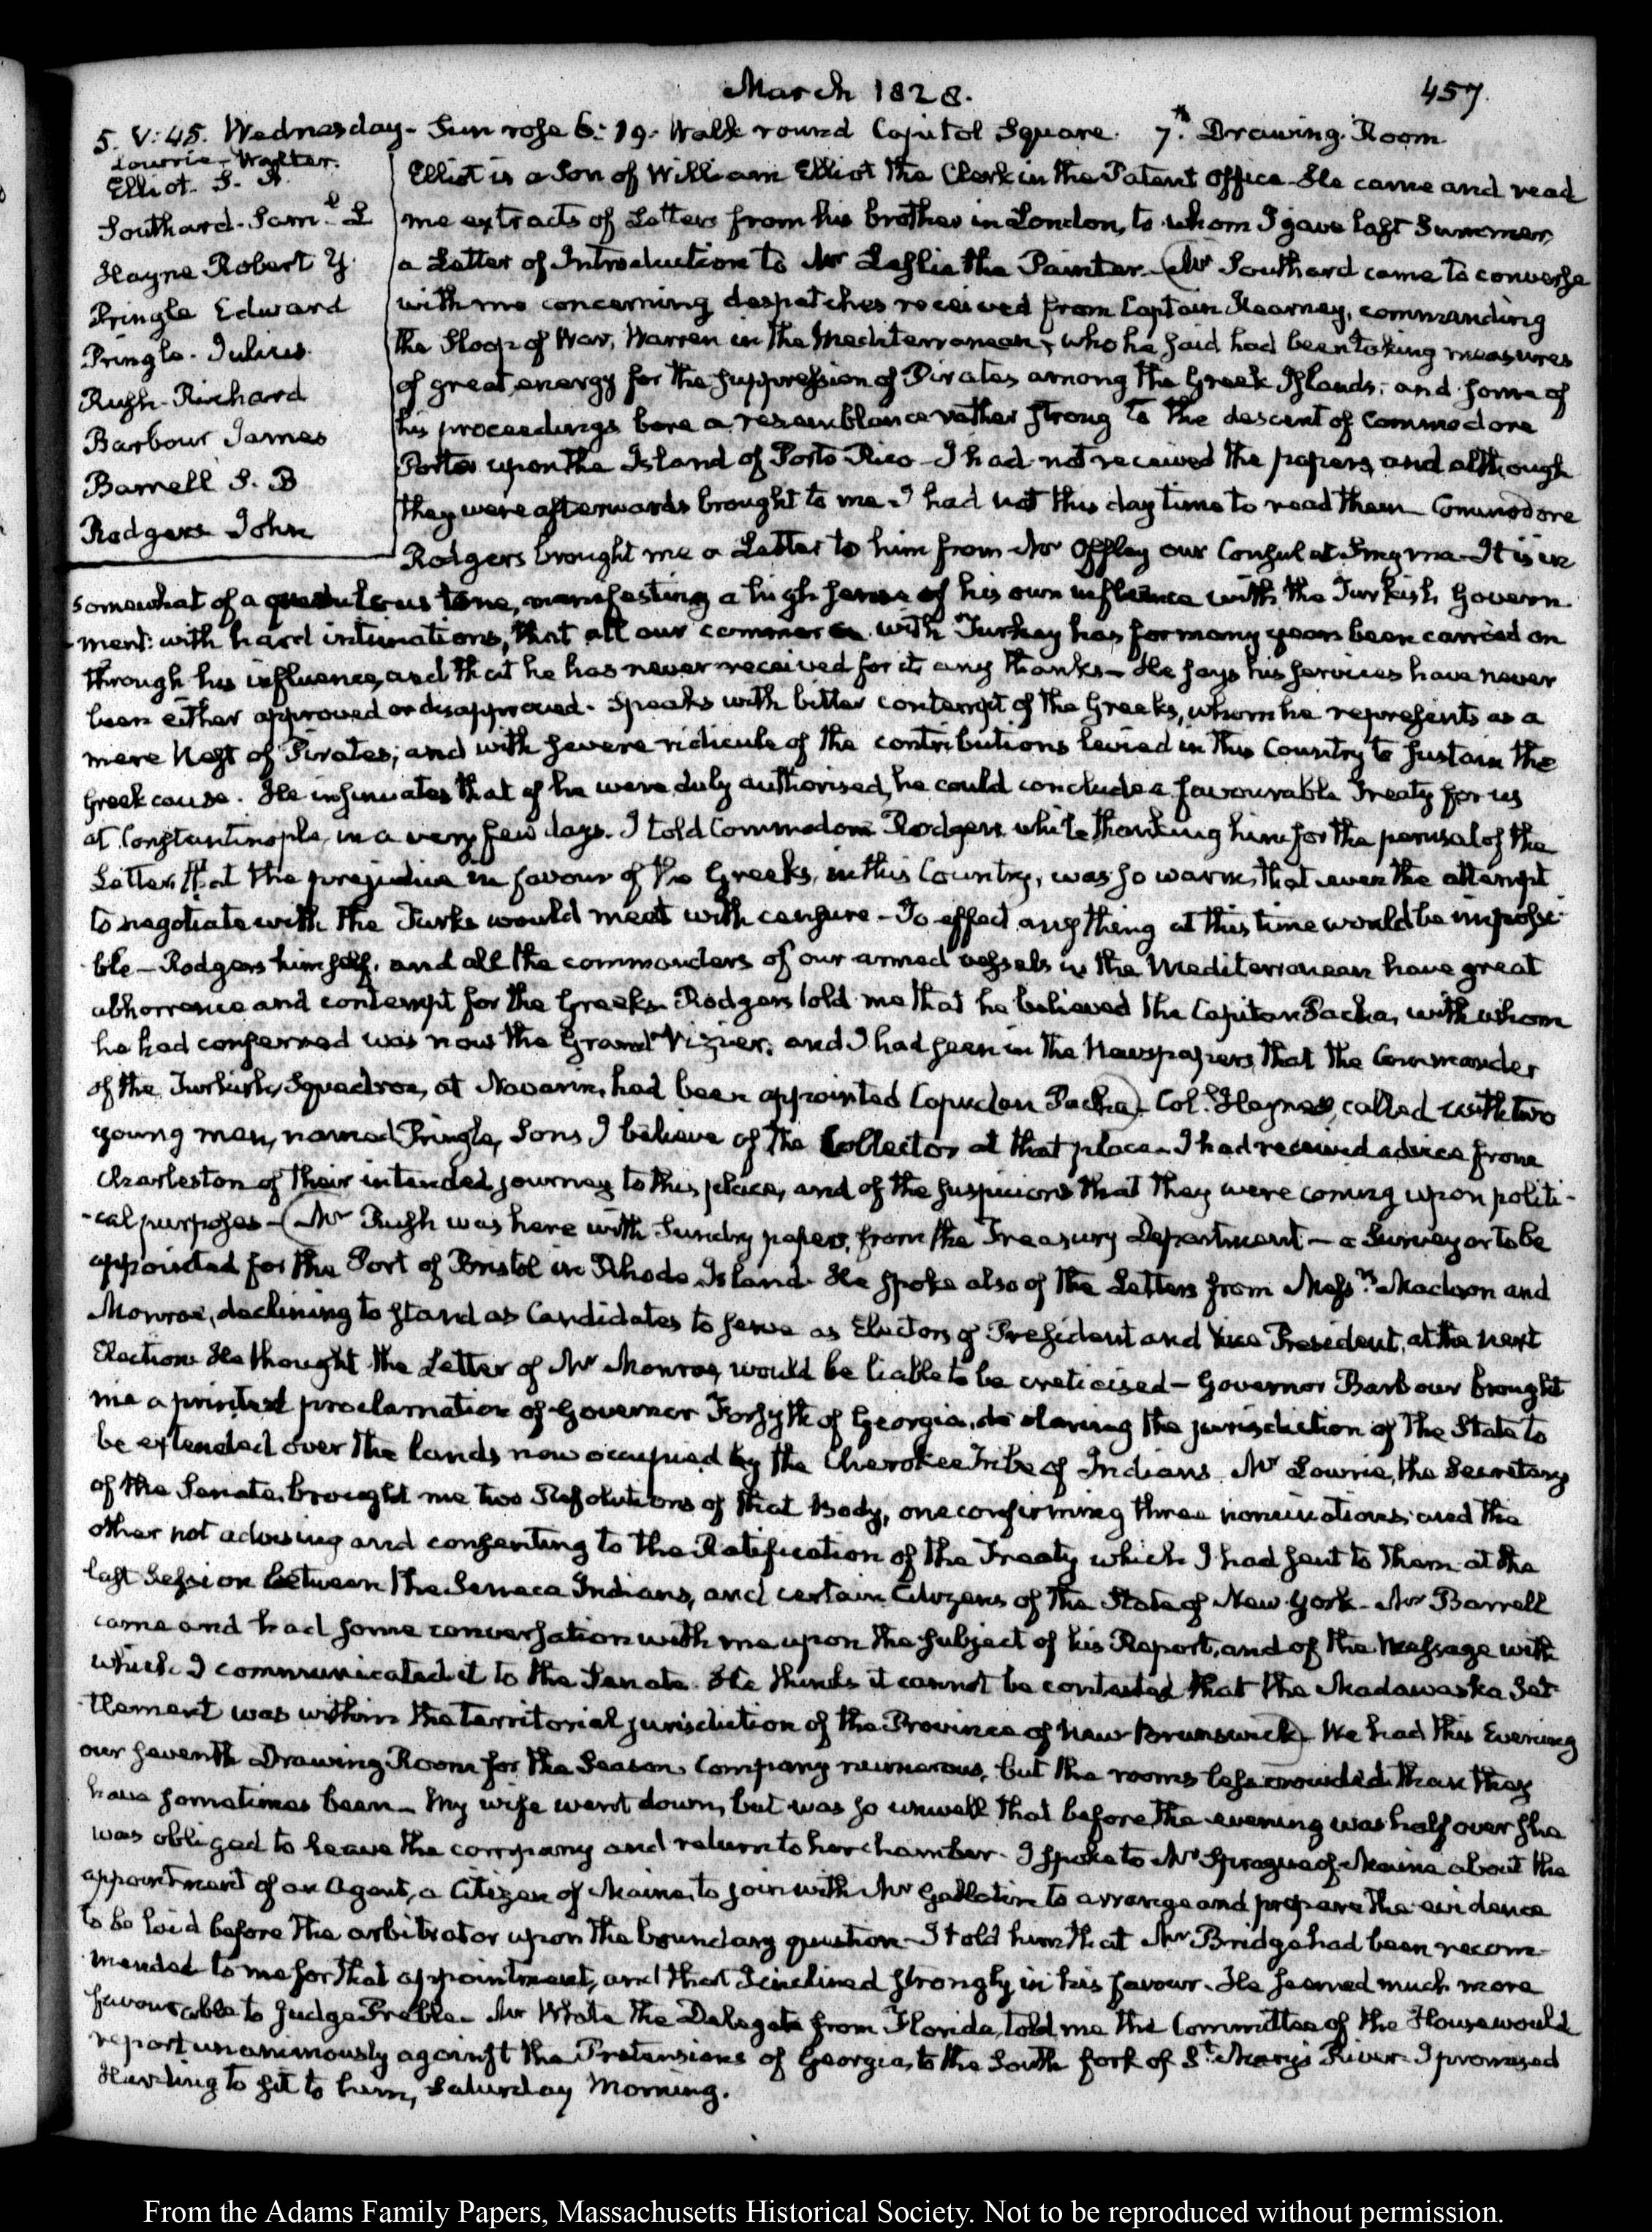 March 1828.
457.
5. V:45. Wednesday. Sun rose 6:19. Walk round Capitol Square. 7th Drawing Room
Lowrie Walter.
Elliot. S. A.
Southard. Saml. L
Hayne Robert Y.
Pringle Edward
Pringle. Julius.
Rush Richard
Barbour James
Barrell S. B
Rodgers John
Elliot is a Son of William Elliot the Clerk in the Patent Office. He came and read
me extracts of Letters from his brother in London, to whom I gave last Summer,
a Letter of Introduction to Mr Leslie the Painter. (Mr Southard came to converse
with me concerning despatches received from Captain Kearney, commanding
the Sloop of War, Warren in the Mediterranean, who he said had been taking measures
of great energy for the suppression of Pirates among the Greek Islands; and some of
his proceedings bore a resemblance rather strong to the descent of Commodore
Porter upon the Island of Porto Rico. I had not received the papers, and although
they were afterwards brought to me. I had not this day time to read them. Commodore
Rodgers brought me a Letter to him from Mr Offley our Consul at Smyrna. It is in
somewhat of a querulous tone, manifesting a high sense of his own influence with the Turkish Govern
-ment: with hard intimations, that all our commerce with Turkey has for many years been carried on
through his influence, and that he has never received for it any thanks. He says his services have never
been either approved or disapproved. Speaks with bitter contempt of the Greeks, whom he represents as a
mere Nest of Pirates; and with severe ridicule of the contributions levied in this Country to sustain the
Greek cause. He insinuates that if he were duly authorised, he could conclude a favourable Treaty for us
at Constantinople, in a very few days. I told Commodore Rodgers while thanking him for the perusal of the
Letter, that the prejudice in favour of the Greeks, in this Country, was so warm, that even the attempt
to negotiate with the Turks would meet with censure. To effect any thing at this time would be impossi-
ble. Rodgers himself, and all the commanders of our armed vessels in the Mediterranean have great
abhorrence and contempt for the Greeks. Rodgers told me that he believed the Capitan Pacha, with whom
he had conferred was now the Grand Vizier; and I had seen in the Newspapers, that the Commander
of the Turkish Squadron, at Navarin, had been appointed Capudan Pacha). Col. Hayne called with two
young men, named Pringle, Sons I believe of the Collector at that place. I had received advice from
Charleston of their intended journey to this place, and of the suspicions that they were coming upon politi-
-cal purposes. (Mr Rush was here with Sundry papers, from the Treasury Department. a Surveyor to be
appointed for the Port of Bristol in Rhode Island. He spoke also of the Letters from Messrs. Madison and
Monroe, declining to stand as Candidates to serve as Electors of President and Vice President, at the next
Election. He thought the Letter of Mr Monroe, would be liable to be criticised. Governor Barbour brought
me a printed proclamation of Governor Forsyth of Georgia, declaring the jurisdiction of the State to
be extended over the lands now occupied by the Cherokee Tribe of Indians. Mr Lowrie, the Secretary
of the Senate, brought me two Resolutions of that Body, one confirming three nominations; and the
other not advising and consenting to the Ratification of the Treaty which I had sent to them at the
last Session between the Seneca Indians, and certain Citizens of the State of New-York. Mr Barrell
came and had some conversation with me upon the subject of his Report, and of the Message with
which I communicated it to the Senate. He thinks it cannot be contested that the Madawaska Set-
tlement was within the territorial jurisdiction of the Province of New Brunswick). We had this Evening
our seventh Drawing Room for the Season. Company numerous, but the rooms less crowded than they
have sometimes been. My wife went down, but was so unwell that before the evening was half over she
was obliged to leave the company and return to her chamber. I spoke to Mr Sprague of Maine about the
appointment of an Agent, a Citizen of Maine, to join with Mr Gallatin to arrange and prepare the evidence
to be laid before the arbitrator upon the boundary question. I told him that Mr Bridge had been recom-
mended to me for that appointment, and that I inclined strongly in his favour. He seemed much more
favourable to Judge Preble. Mr White the Delegate from Florida, told me the Committee of the House would
report unanimously against the Pretensions of Georgia, to the South fork of St. Mary's River. I promised
Harding to sit to him, Saturday Morning.
From the Adams Family Papers, Massachusetts Historical Society. Not to be reproduced without permission.